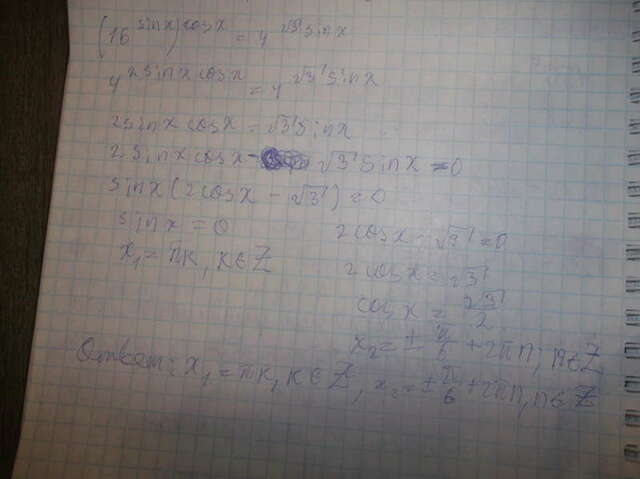 (16^sinx)^cosx = 4^√3 sinx
4^2sinx cosx = 4^√3 sinx
2sinx cosx = √3 sinx
2sinx cosx - √3 sinx = 0
sinx(2cosx - √3) = 0
sinx = 0
x₁ = πk, k∈Z
2cosx - √3 = 0
2cosx = √3
cosx = √3/2
x₂ = ± π/6 + 2πn, n∈Z
Ответ: x₁ = πk, k∈Z, x₂ = ± π/6 + 2πn, n∈Z